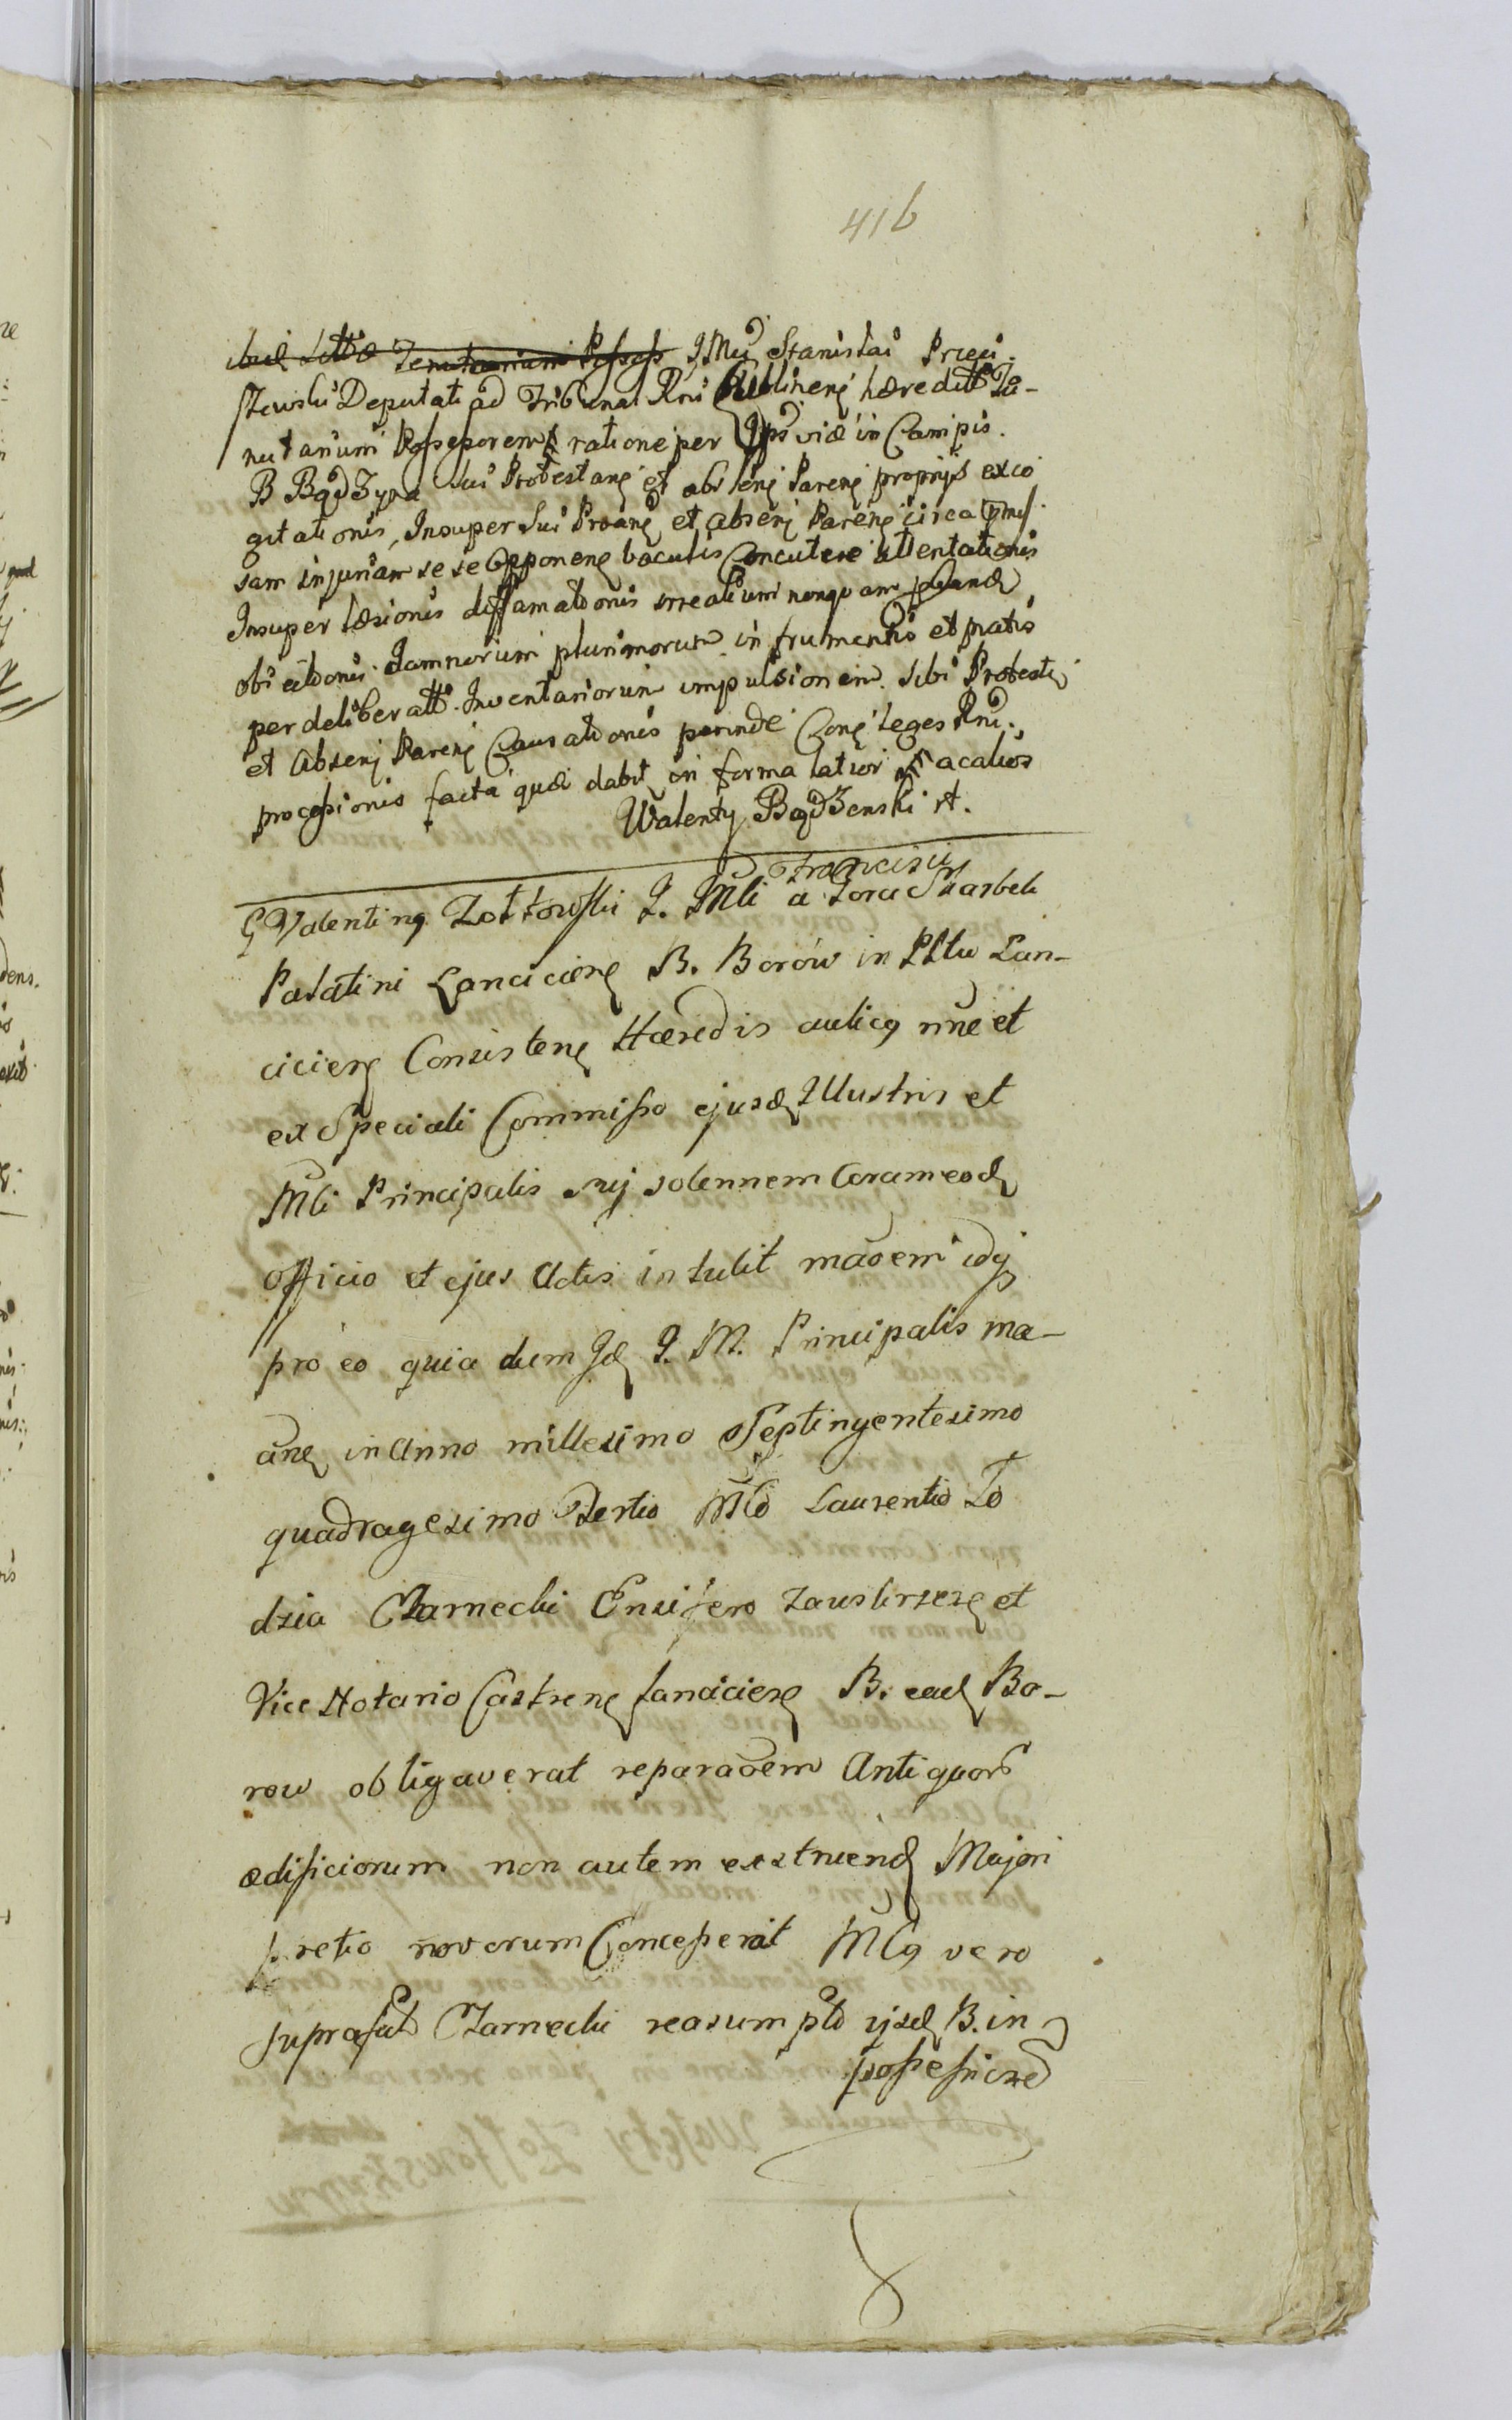 416
JMci Stanislai Przeu
szewski Deputati ad Tribunal Rni Lublinens hæredit Te-
nutarium Possessorem ratione per Ips viæ in Campis.
B Bądzyna sui Protestans et absens Parens proprijs exco
gitationis, Insuper sui Protans et absens Parens circa
sam injuriam sese Opponens baculis Concutere attentationis
Insuper læsionis diffamationis irrealium nunquam
obiectionis damnorum plurimorum in frumentis et pratis
per deliberatt Inventariorum impulsionem sibi Protesti
et Absens Parens Causationis perinde Cons leges Rni.
processionis facta quæ dabit in forma latiori acalios
Walenty Bądzenski
Franciscus
G Valentinus Zołtowski J. Mli a Gora Skarbek
Palatini Lanciciens B. Borów in Plltu Lan-
ciciens Consistens Hæredis aulicus nne et
ex Speciali Commisso ejusd Illustris et
Mli Principalis sui solennem Coram eod
officio et ejus Actis intulit maoem idq
pro eo quia dum Id J. M. Principalis ma-
ans in Anno millesimo Septingentesimo
quadragesimo Tertio Mco Laurentio Lo
dzia Czarnecki Ensifero Zauskrzese et
Vice Notario Castrens Lanciciens B. ead Bo-
row obligaverat reparaoem Antiquor
ædificiorum non autem exstruend Majori
pretio novorum Concesserat Mcus vero
suprafat Czarnecki reasumpto ijsd B. in
possessione